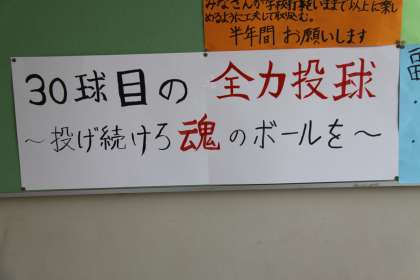 みなさんが学校行事をいままで以上に楽し
めるように工夫して取組む。
半年間 お願いします
30球目の 全力投球
〜投げ続けろ魂のボールを〜